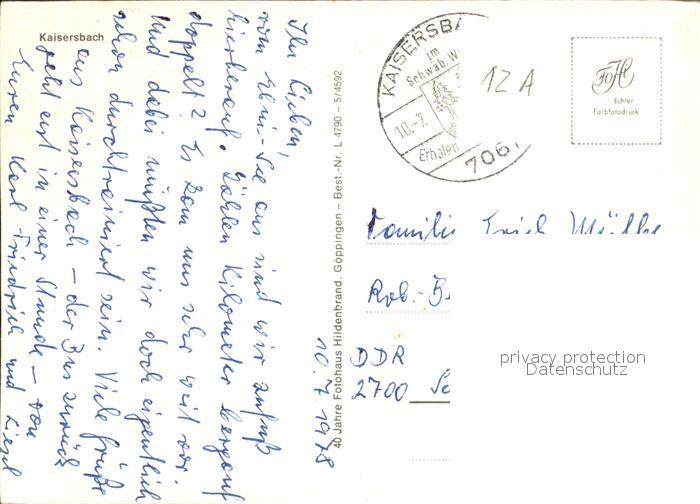 Kaisersbach
Ihr Lieben,
vom Ebni-See aus sind wir zufuß
hierherauf. Zählen Kilometer bergauf
doppelt? Es kam uns sehr weit vor.
Und dabei müßten wir doch eigentlich
schon durchtrainiert sein. Viele Grüße
aus Kaisersbach – der Bus zurück
geht erst in einer Stunde – von
Euren Karl-Friedrich und Liesel
10.7.1978
40 Jahre Fotohaus Hildenbrand, Göppingen – Best.-Nr. L 4790 – 5/4592
KAISERSBA
im
Schwäb. W
10.-7.
Erholen
706
12 A
FoHi
Echter
Farbfotodruck
Familie
Rob.-
DDR
2700
privacy protection
Datenschutz